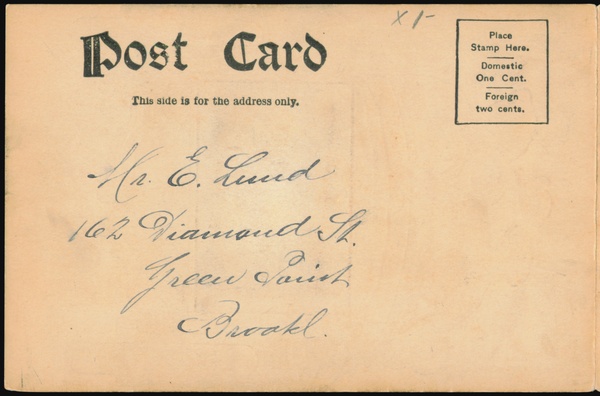 x 1-
Post Card
This side is for the address only.
Place
Stamp Here.
Domestic
One Cent.
Foreign
two cents.
Mr. E. Lund
162 Diamond St.
Green Point
Brookl.